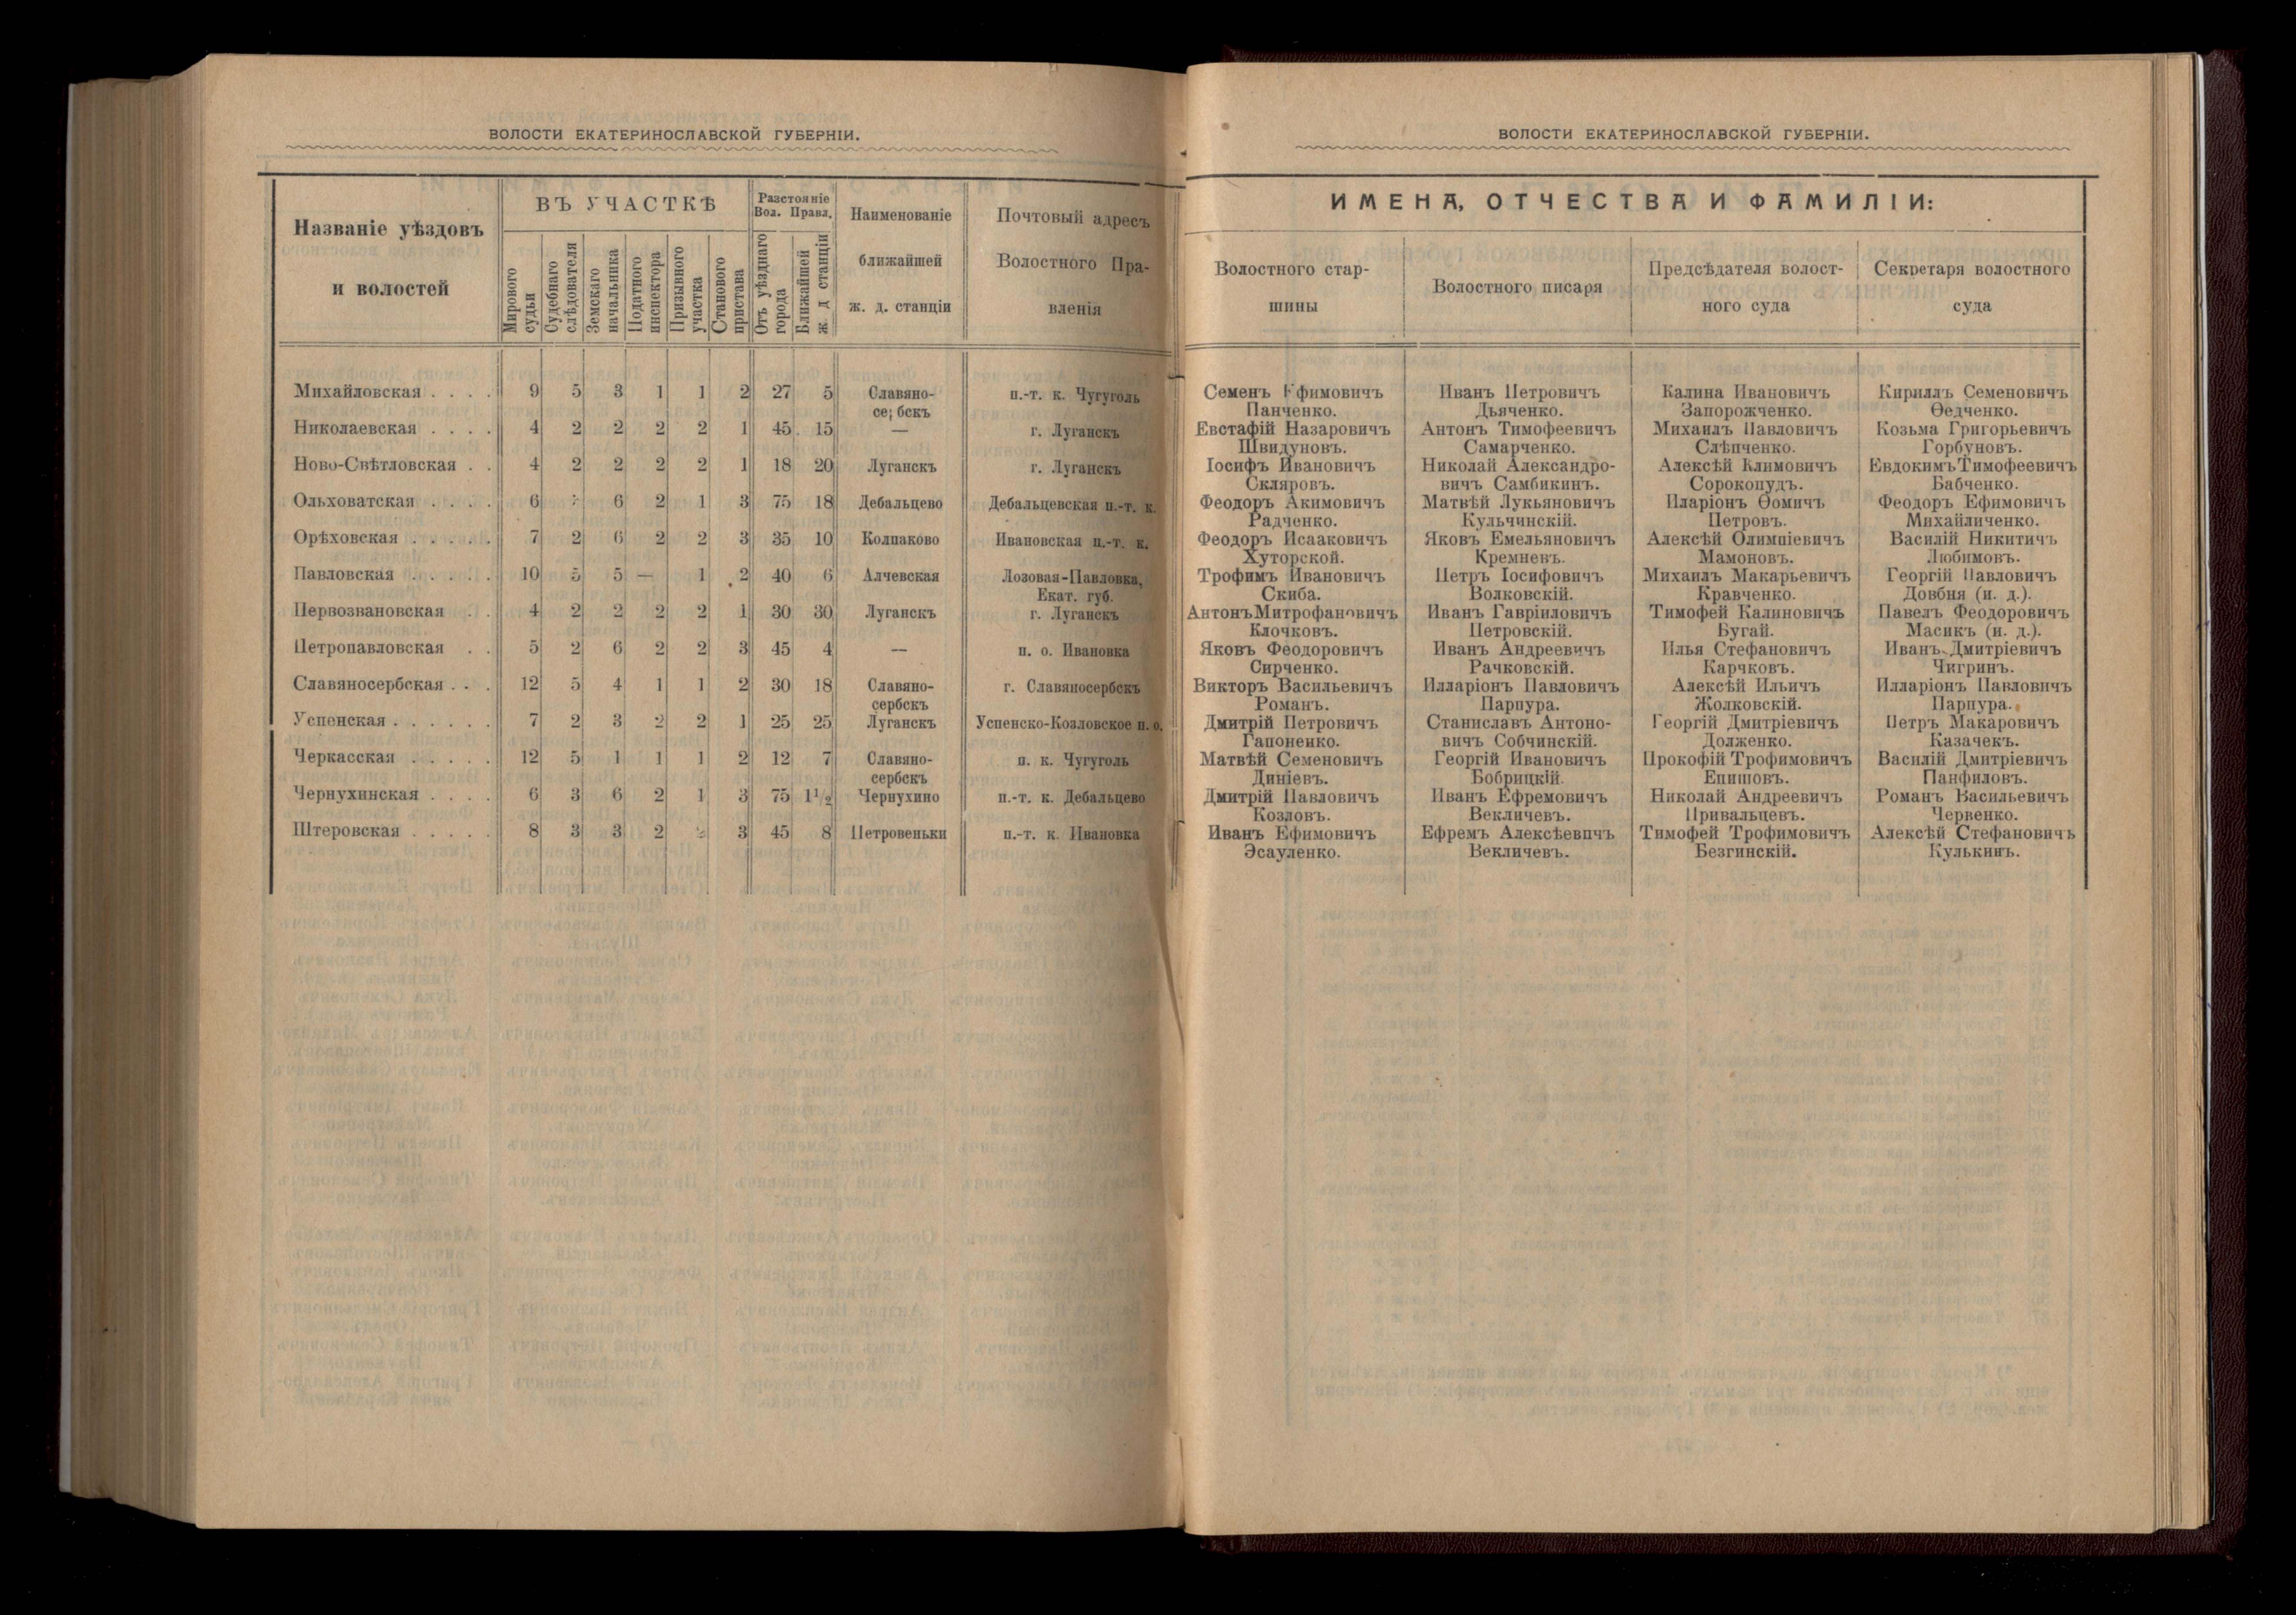 ВОЛОСТИ ЕКАТЕРИНОСЛАВСКОЙ ГУБЕРНІИ.
Названіе уѣздовъ
и волостей
ВЪ УЧАСТКѢ
Мирового судьи
Судебнаго слѣдователя
Земскаго начальника
Податного инспектора
Призывного участка
Станового пристава
Разстояніе
Вол. Правл.
Отъ уѣзднаго города
Ближайшей ж д станціи
Наименованіе
ближайшей
ж. д. станціи
Почтовый адресъ
Волостного Пра-
вленія
Михайловская . . . . 9 5 3 1 1 2 27 5 Славяно- п.-т. к. Чугуголь
се; бскъ
Николаевская . . . . 4 2 2 2 2 1 45 15 — г. Луганскъ
Ново-Свѣтловская . . 4 2 2 2 2 1 18 20 Луганскъ г. Луганскъ
Ольховатская . . . . 6 6 2 1 3 75 18 Дебальцево Дебальцевская п.-т. к.
Орѣховская . . . . . 7 2 6 2 2 3 35 10 Колпаково Ивановская п.-т. к.
Павловская . . . . . 10 5 5 — 1 2 40 6 Алчевская Лозовая-Павловка,
Екат. губ.
Первозвановская . . 4 2 2 2 2 1 30 30 Луганскъ г. Луганскъ
Петропавловская . . 5 2 6 2 2 3 45 4 — п. о. Ивановка
Славяносербская . . . 12 5 4 1 1 2 30 18 Славяно- г. Славяносербскъ
сербскъ
Успенская . . . . . . 7 2 3 2 2 1 25 25 Луганскъ Успенско-Козловское п. о.
Черкасская . . . . . 12 5 1 1 1 2 12 7 Славяно- п. к. Чугуголь
сербскъ
Чернухинская . . . . 6 3 6 2 1 3 75 1½ Чернухино п.-т. к. Дебальцево
Штеровская . . . . . 8 3 3 2 3 45 8 Петровеньки п.-т. к. Ивановка
ВОЛОСТИ ЕКАТЕРИНОСЛАВСКОЙ ГУБЕРНІИ.
ИМЕНА, ОТЧЕСТВА И ФАМИЛІИ:
Волостного стар-
шины
Волостного писаря
Предсѣдателя волост-
ного суда
Секретаря волостного
суда
Семенъ Ефимовичъ Иванъ Петровичъ Калина Ивановичъ Кириллъ Семеновичъ
Панченко. Дьяченко. Запорожченко. Ѳедченко.
Евстафій Назаровичъ Антонъ Тимофеевичъ Михаилъ Павловичъ Козьма Григорьевичъ
Швидуновъ. Самарченко. Слѣпченко. Горбуновъ.
Іосифъ Ивановичъ Николай Александро- Алексѣй Климовичъ ЕвдокимъТимофеевичъ
Скляровъ. вичъ Самбикинъ. Сорокопудъ. Бабченко.
Феодоръ Акимовичъ Матвѣй Лукьяновичъ Иларіонъ Ѳомичъ Феодоръ Ефимовичъ
Радченко. Кульчинскій. Петровъ. Михайличенко.
Феодоръ Исааковичъ Яковъ Емельяновичъ Алексѣй Олимпіевичъ Василій Никитичъ
Хуторской. Кремневъ. Мамоновъ. Любимовъ.
Трофимъ Ивановичъ Петръ Іосифовичъ Михаилъ Макарьевичъ Георгій Павловичъ
Скиба. Волковскій. Кравченко. Довбня (и. д.).
АнтонъМитрофановичъ Иванъ Гавріиловичъ Тимофей Калиновичъ Павелъ Феодоровичъ
Клочковъ. Петровскій. Бугай. Масикъ (и. д.).
Яковъ Феодоровичъ Иванъ Андреевичъ Илья Стефановичъ Иванъ Дмитріевичъ
Сирченко. Рачковскій. Карчковъ. Чигринъ.
Викторъ Васильевичъ Илларіонъ Павловичъ Алексѣй Ильичъ Илларіонъ Павловичъ
Романъ. Парпура. Жолковскій. Парпура.
Дмитрій Петровичъ Станиславъ Антоно- Георгій Дмитріевичъ Петръ Макаровичъ
Гапоненко. вичъ Собчинскій. Долженко. Казачекъ.
Матвѣй Семеновичъ Георгій Ивановичъ Прокофій Трофимовичъ Василій Дмитріевичъ
Диніевъ. Бобрицкій. Епишовъ. Панфиловъ.
Дмитрій Павловичъ Иванъ Ефремовичъ Николай Андреевичъ Романъ Васильевичъ
Козловъ. Векличевъ. Привальцевъ. Червенко.
Иванъ Ефимовичъ Ефремъ Алексѣевичъ Тимофей Трофимовичъ Алексѣй Стефановичъ
Эсауленко. Векличевъ. Безгинскій. Кулькинъ.